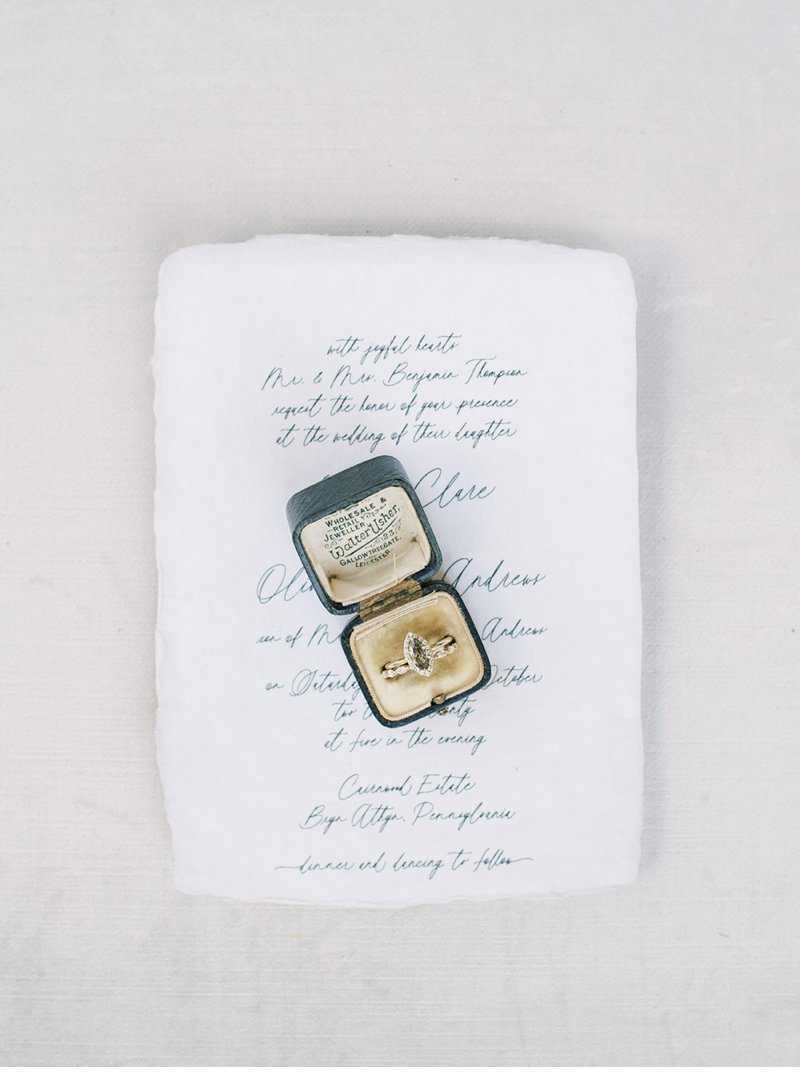 with joyful hearts
Mr. & Mrs. Benjamin Thompson
request the honor of your presence
at the wedding of their daughter
Clare
WHOLESALE &
RETAIL
JEWELLER
Walter Usher,
23,
GALLOWTREEGATE,
LEICESTER.
Andrews
son of Andrews
on October
at five in the evening
Cairnwood Estate
Bryn Athyn, Pennsylvania
dinner and dancing to follow